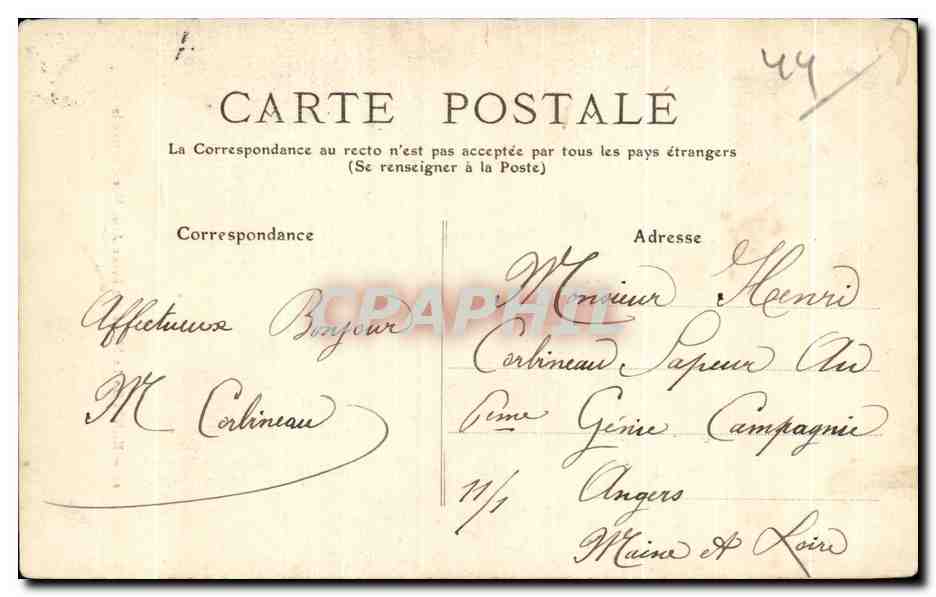 44
CARTE POSTALE
La Correspondance au recto n'est pas acceptée par tous les pays étrangers
(Se renseigner à la Poste)
Correspondance
Affectueux Bonjour
M Corbineau
Adresse
Monsieur Henri
Corbineau Sapeur Au
6eme Génie Campagnie
11/1 Angers
Maine et Loire
CPAPHIL